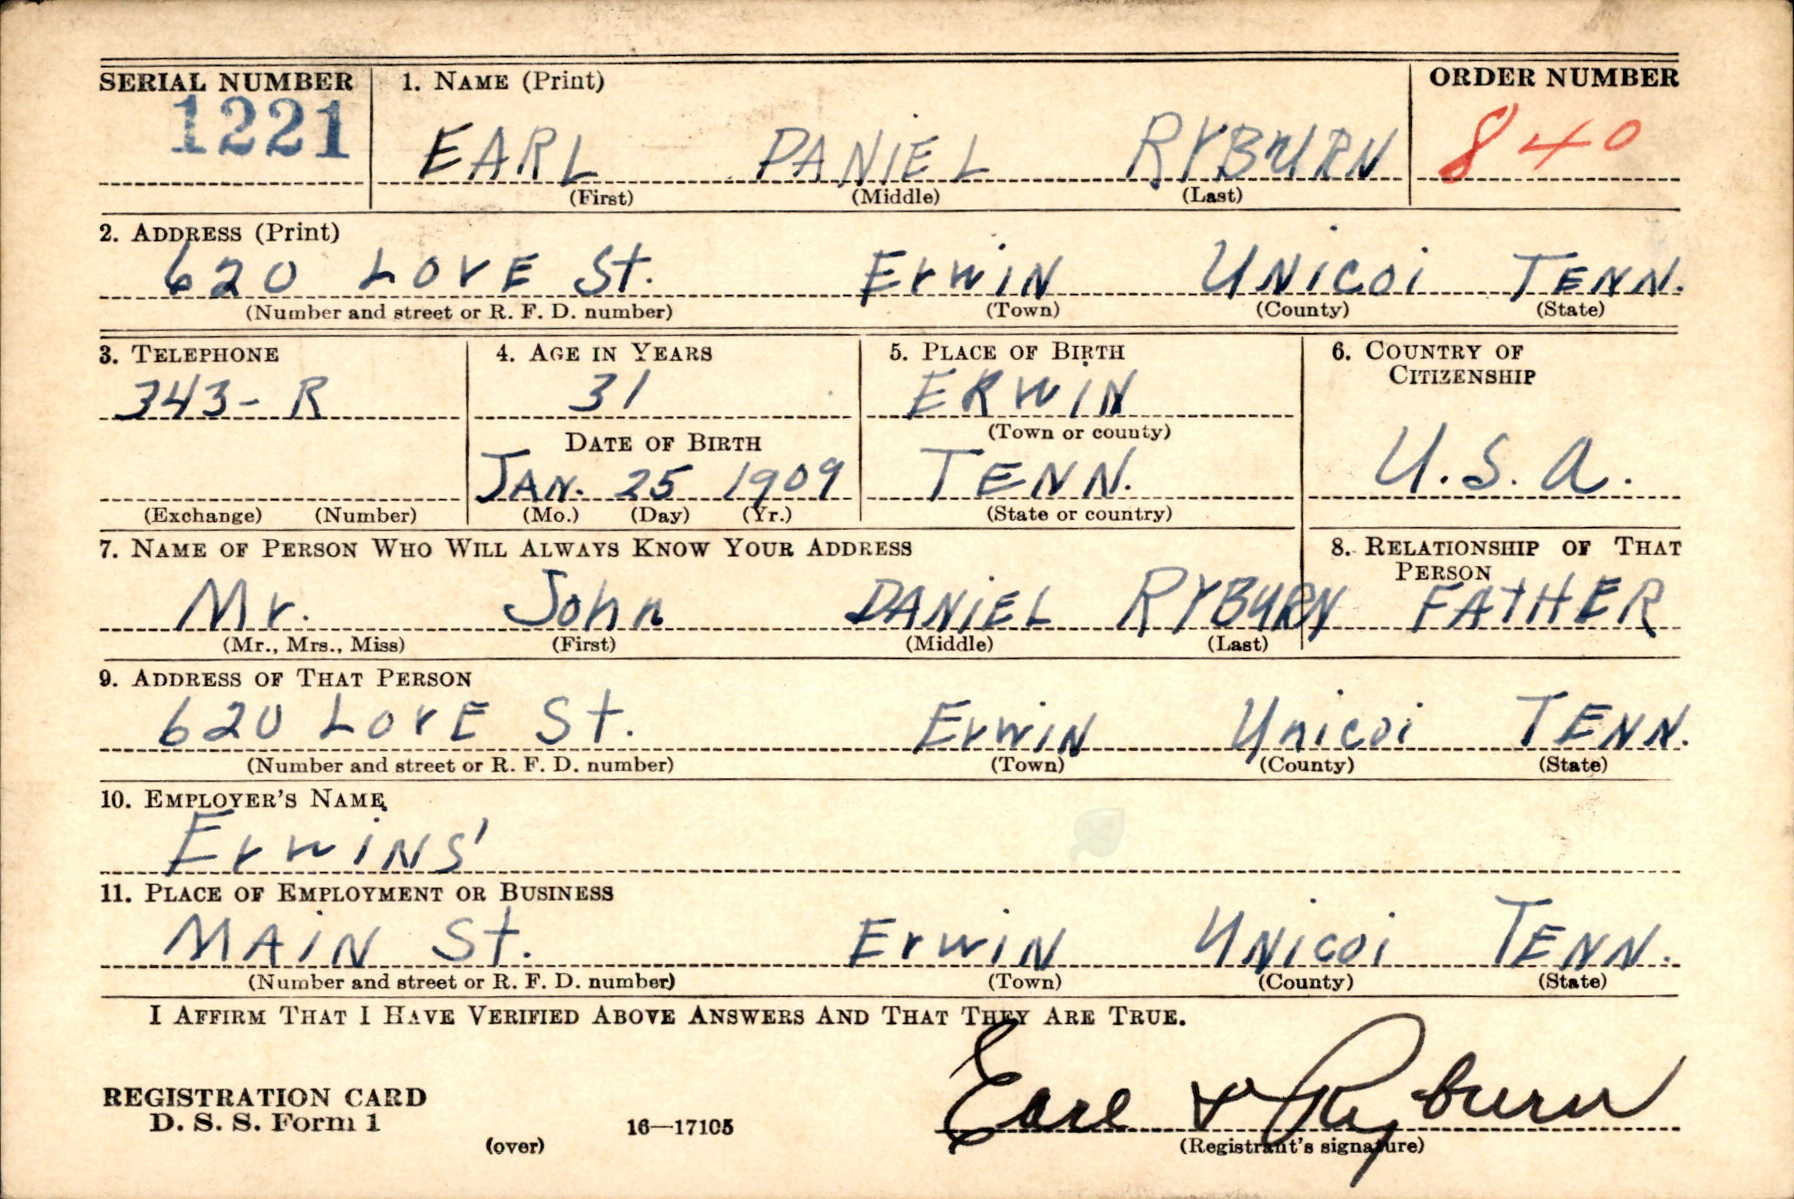 SERIAL NUMBER 1. NAME (Print) ORDER NUMBER
1221 EARL DANIEL RYBURN 840
(First) (Middle) (Last)
2. ADDRESS (Print)
620 LOVE St. Erwin Unicoi TENN.
(Number and street or R. F. D. number) (Town) (County) (State)
3. TELEPHONE 4. AGE IN YEARS 5. PLACE OF BIRTH 6. COUNTRY OF CITIZENSHIP
343-R 31 ERWIN
(Town or county)
DATE OF BIRTH
JAN. 25 1909 TENN. U.S.A.
(Exchange) (Number) (Mo.) (Day) (Yr.) (State or country)
7. NAME OF PERSON WHO WILL ALWAYS KNOW YOUR ADDRESS 8. RELATIONSHIP OF THAT PERSON
Mr. John DANIEL RYBURN FATHER
(Mr., Mrs., Miss) (First) (Middle) (Last)
9. ADDRESS OF THAT PERSON
620 LOVE St. Erwin Unicoi TENN.
(Number and street or R. F. D. number) (Town) (County) (State)
10. EMPLOYER'S NAME
Erwins'
11. PLACE OF EMPLOYMENT OR BUSINESS
MAIN St. Erwin Unicoi TENN.
(Number and street or R. F. D. number) (Town) (County) (State)
I AFFIRM THAT I HAVE VERIFIED ABOVE ANSWERS AND THAT THEY ARE TRUE.
REGISTRATION CARD
D. S. S. Form 1 16—17105 Earl D Ryburn
(over) (Registrant's signature)